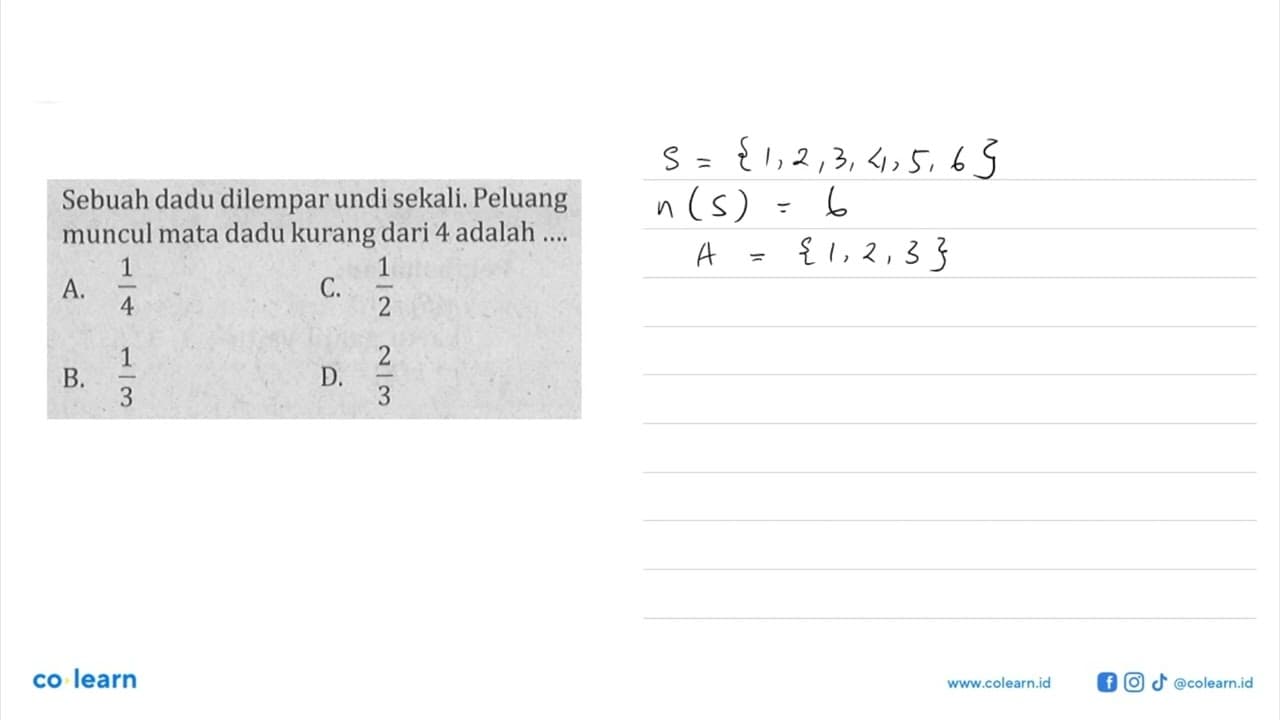 Sebuah dadu dilempar undi sekali. Peluang
muncul mata dadu kurang dari 4 adalah ....
A. 1/4 C. 1/2
B. 1/3 D. 2/3
S = {1, 2, 3, 4, 5, 6}
n(S) = 6
A = {1, 2, 3}
co learn
www.colearn.id
@colearn.id